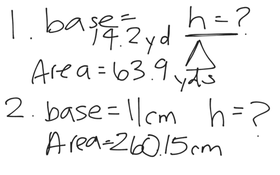 1. base= h=?
14.2yd
Area=63.9 yds
2. base=11cm h=?
Area=260.15cm